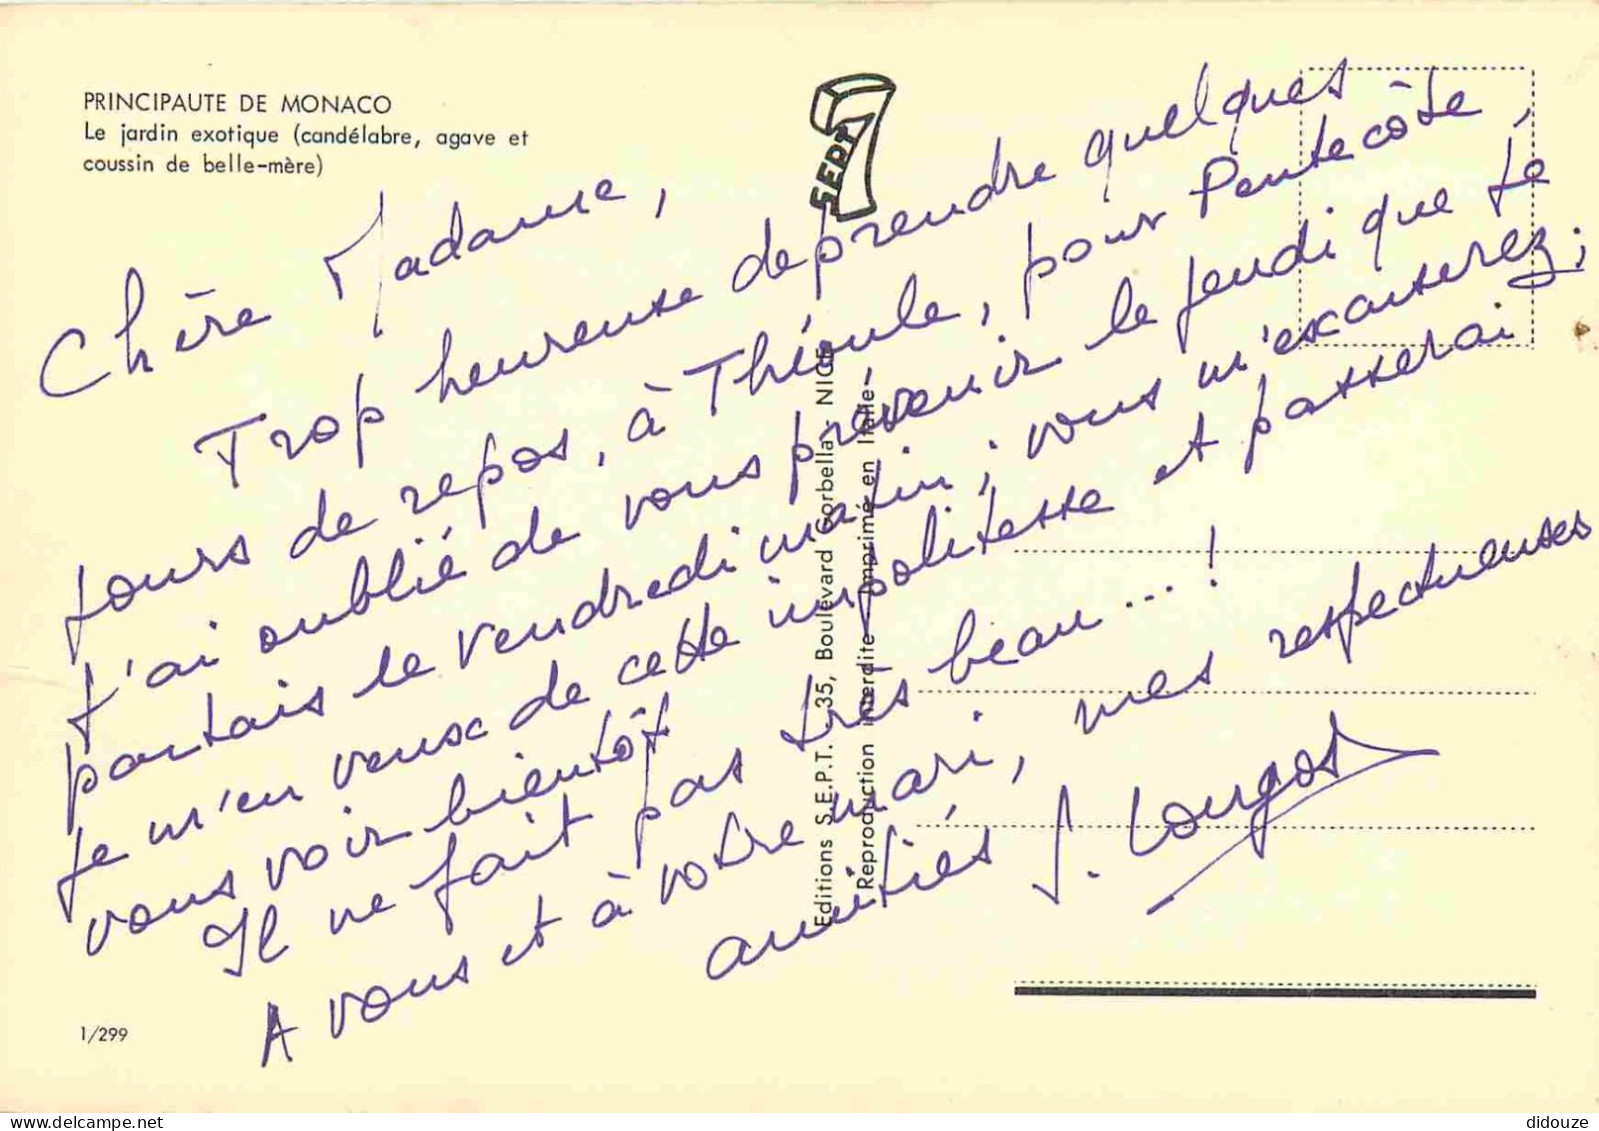 PRINCIPAUTE DE MONACO
Le jardin exotique (candélabre, agave et
coussin de belle-mère)
SEPT 7
Chère Madame,
Trop heureuse de prendre quelques
jours de repos, à Théoule, pour Pentecôte,
j'ai oublié de vous prévenir le jeudi que je
partais le vendredi matin; vous m'excuserez;
je m'en veux de cette impolitesse et passerai
vous voir bientôt
Il ne fait pas très beau...!
A vous et à votre mari, mes respectueuses
amitiés
Editions S.E.P.T. - 35, Boulevard Gorbella - NICE
Reproduction interdite - Imprimé en Italie
1/299
didouze